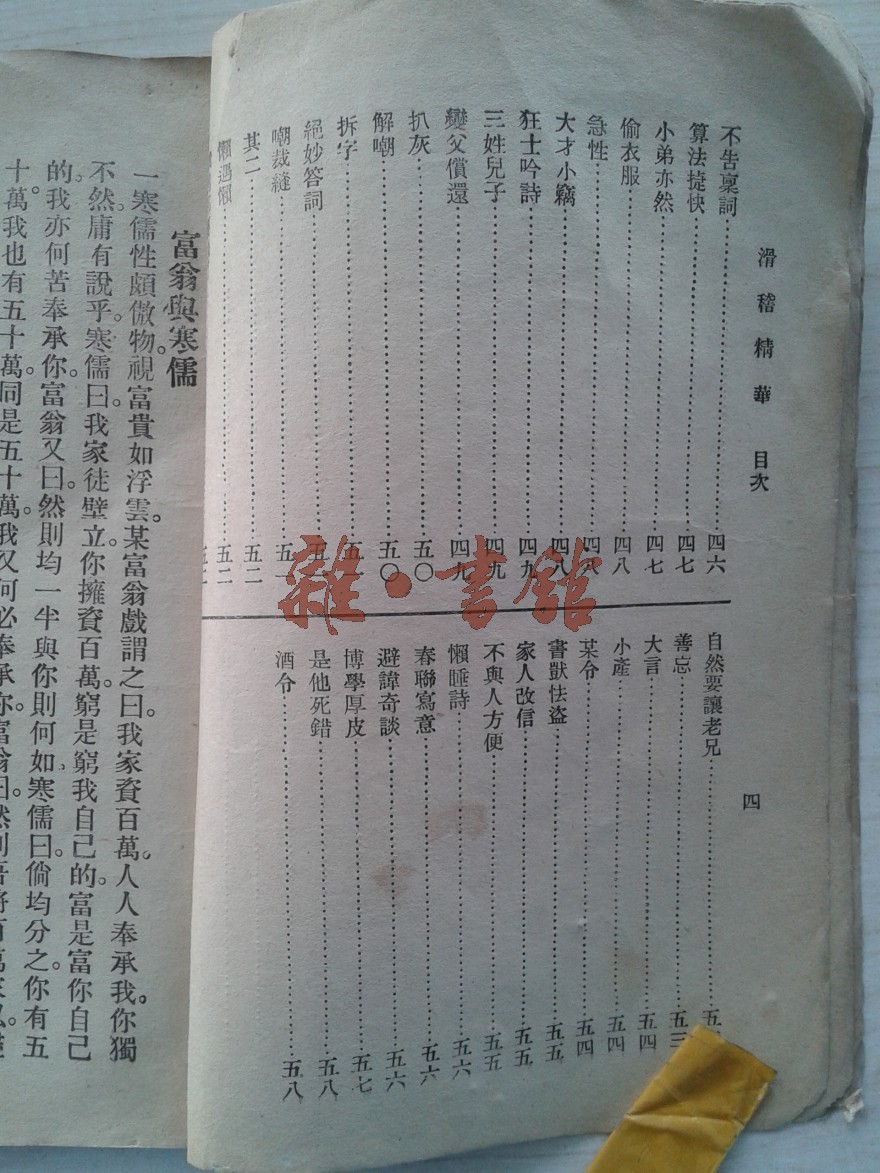 滑稽精華 目次
四
不告稟詞 四六
算法捷快 四七
小弟亦然 四七
偷衣服 四八
急性 四八
大才小竊 四八
狂士吟詩 四九
三姓兒子 四九
變父償還 四九
扒灰 五〇
解嘲 五〇
拆字 五一
絕妙答詞
嘲裁縫
其二 五二
懶遇懶 五二
自然要讓老兄 五
善忘 五三
大言 五四
小產 五四
某令 五四
書獃怯盜 五五
家人改信 五五
不與人方便 五五
懶睡詩 五六
春聯寫意 五六
避諱奇談 五六
博學厚皮 五七
是他死錯 五八
酒令 五八
雜·書館
富翁與寒儒
一寒儒性頗傲物。視富貴如浮雲。某富翁戲謂之曰。我家資百萬。人人奉承我。你獨
不然。庸有說乎。寒儒曰。我家徒壁立。你擁資百萬。窮是窮我自己的。富是富你自己
的。我亦何苦奉承你。富翁又曰。然則均一半與你則何如。寒儒曰。倘均分之。你有五
十萬。我也有五十萬。同是五十萬。我又何必奉承你。富翁曰。然則吾將百萬家私。